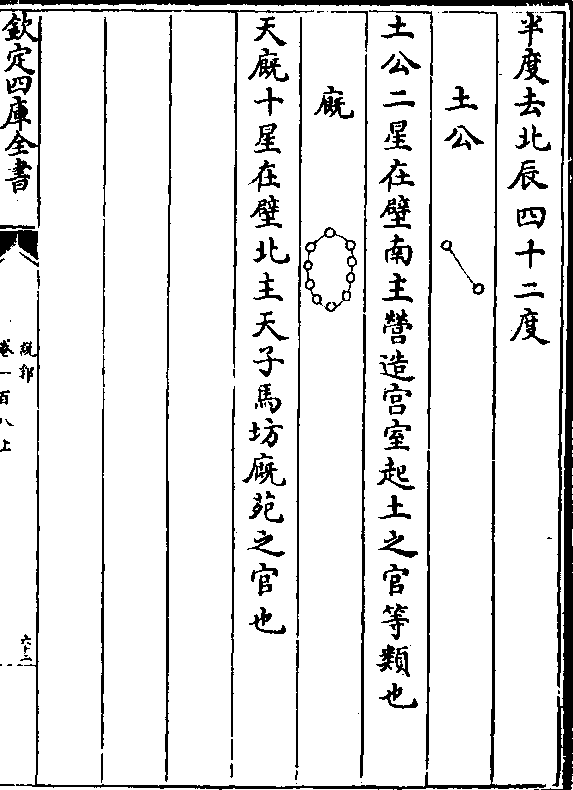 半度去北辰四十二度
土公
土公二星在壁南主營造宫室起土之官等類也
廐
天廐十星在壁北主天子馬坊廐苑之官也
欽定四庫全書
說郛
卷一百八上
六十二